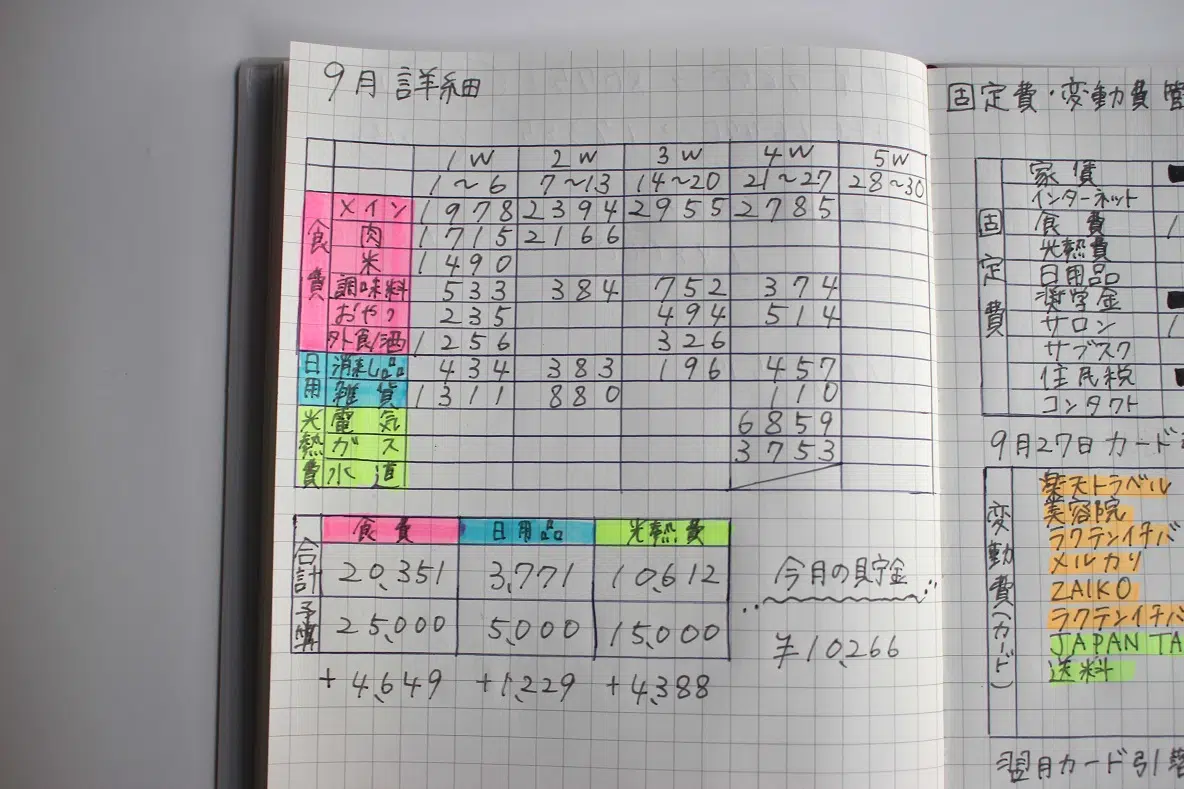 9月 詳細
1W 2W 3W 4W 5W
1～6 7～13 14～20 21～27 28～30
食費
メイン 1978 2394 2955 2785
肉 1715 2166
米 1490
調味料 533 384 752 374
おやつ 235 494 514
外食/酒 1256 326
日用
消耗品 434 383 196 457
雑貨 1311 880 110
光熱費
電気 6859
ガス 3753
水道
食費 日用品 光熱費
合計 20,351 3,771 10,612
予算 25,000 5,000 15,000
+4,649 +1,229 +4,388
今月の貯金
¥10,266
固定費・変動費
固定費
家賃
インターネット
食費
光熱費
日用品
奨学金
サロン
サブスク
住民税
コンタクト
9月27日 カード
変動費(カード)
楽天トラベル
美容院
ラクテンイチバ
メルカリ
ZAIKO
ラクテンイチバ
JAPAN TA
送料
翌月カード引